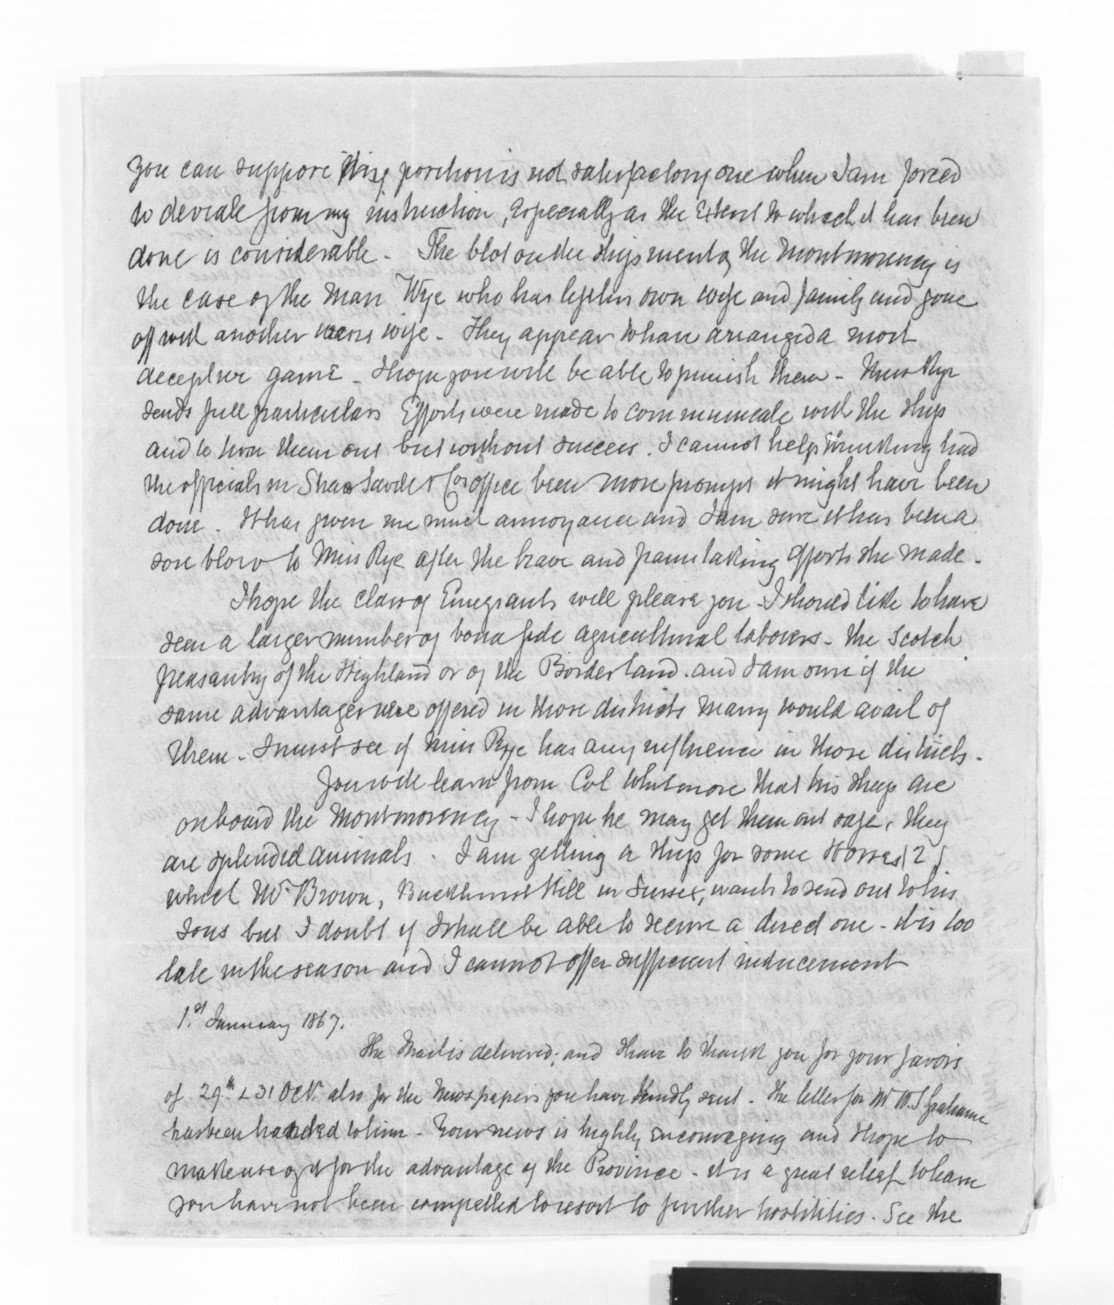 you can suppose my position is not satisfactory one when I am forced
to deviate from my instruction, Especially as the Extent to which it has been
done is considerable - The blot on the shipment of the Montmorency is
the case of the man Wye who has left his own wife and family and gone
off with another mens wife - They appear to have arranged a most
deceptive game - I hope you will be able to punish them - Miss Rye
sends full particulars Efforts were made to communicate with the ship
and to turn them out but without success. I cannot help thinking had
the officials in Shaw Savile & Cos office been more prompt it might have been
done. It has given me much annoyance and I am sure it has been a
sore blow to Miss Rye after the brave and painstaking efforts she made -
I hope the class of Emigrants will please you - I should like to have
seen a larger number of bona fide agricultural laborers - the Scotch
peasantry of the Highland or of the Borderland. and I am sure if the
same advantages were offered in those districts many would avail of
them - I must see if Miss Rye has any influence in those districts -
You will learn from Col Whitmore that his sheep are
on board the Montmorency - I hope he may get them out safe, they
are splendid animals. I am getting a ship for some Horses (2)
which Mr Brown, Buckhurst Hill in Sussex, wants to send out to his
sons but I doubt if I shall be able to secure a direct one - it is too
late in the season and I cannot offer sufficient inducement
1st January 1867.
The Mail is delivered, and I have to thank you for your favors
of 29th & 31 Oct. also for the Newspapers you have kindly sent - The letter for Mr W.S Grahame
has been handed to him - Your news is highly encouraging and I hope to
make use of it for the advantage of the Province - it is a great relief to learn
you have not been compelled to resort to further hostilities. See the